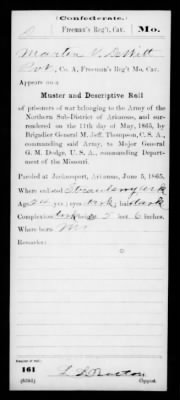 Confederate.
Freeman's Reg't, Cav. Mo.
Martin V. DeWitt
Pvt, Co. A, Freeman's Reg't Mo. Cav.
Appears on a
Muster and Descriptive Roll
of prisoners of war belonging to the Army of the
Northern Sub-District of Arkansas, and sur-
rendered on the 11th day of May, 1865, by
Brigadier General M. Jeff. Thompson, C. S. A.,
commanding said Army, to Major General
G. M. Dodge, U. S. A., commanding Depart-
ment of the Missouri.
Paroled at Jacksonport, Arkansas, June 5, 1865.
Where enlisted
Age 24 yrs; eyes dark; hair dark
Complexion dark; height 5 feet 6 inches.
Where born Mo
Remarks:
Number of roll:
161
Copyist.